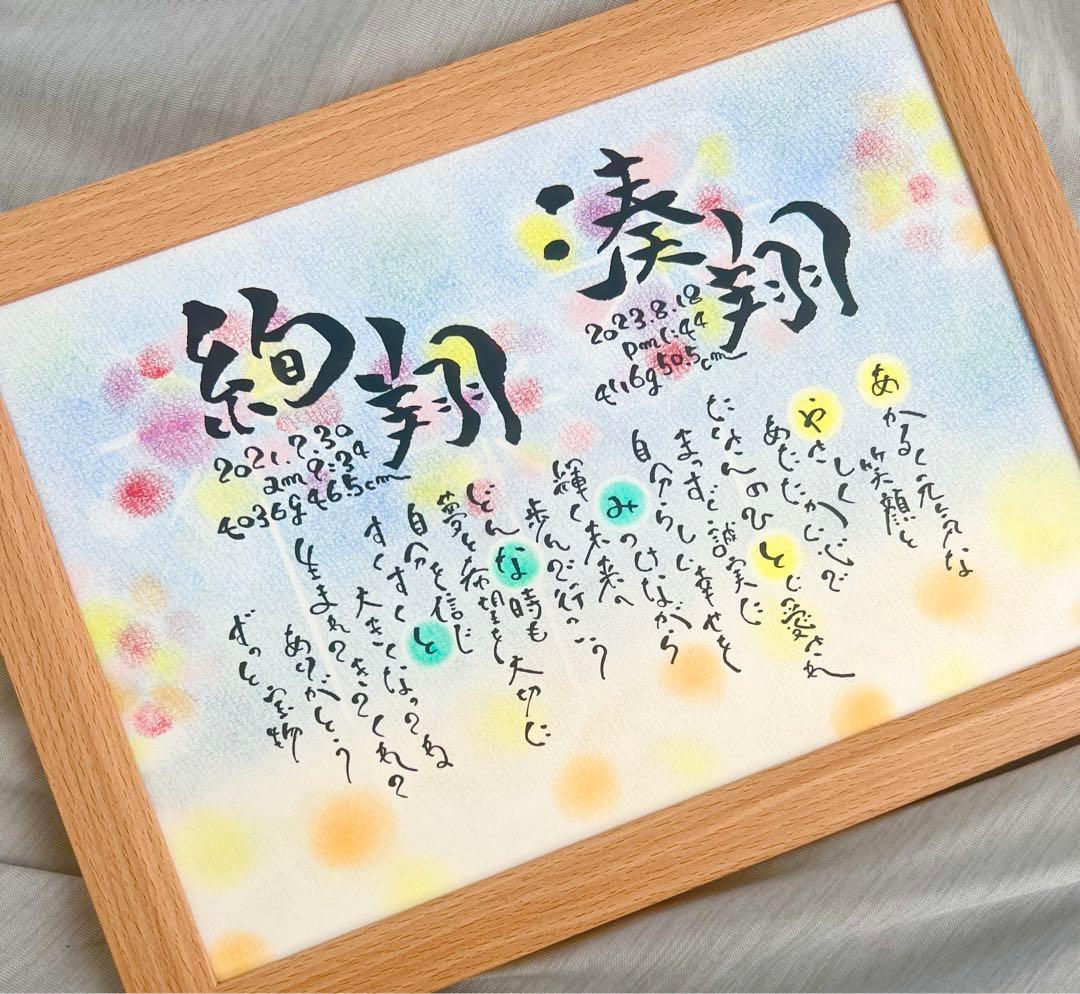 湊翔
2023.8.18
pm1:44
4116g50.5cm
絢翔
2021.7.30
am9:34
4036g46.5cm
あかるく元気な
笑顔と
やさしく
あたたかい心で
たくさんのひとに愛され
まっすぐ誠実に
自分らしい幸せを
みつけながら
輝く未来へ
歩んで行こう
どんな時も大切に
夢と希望を
自分を信じ
すくすくと大きくなってね
生まれてきてくれて
ありがとう
ずっと宝物